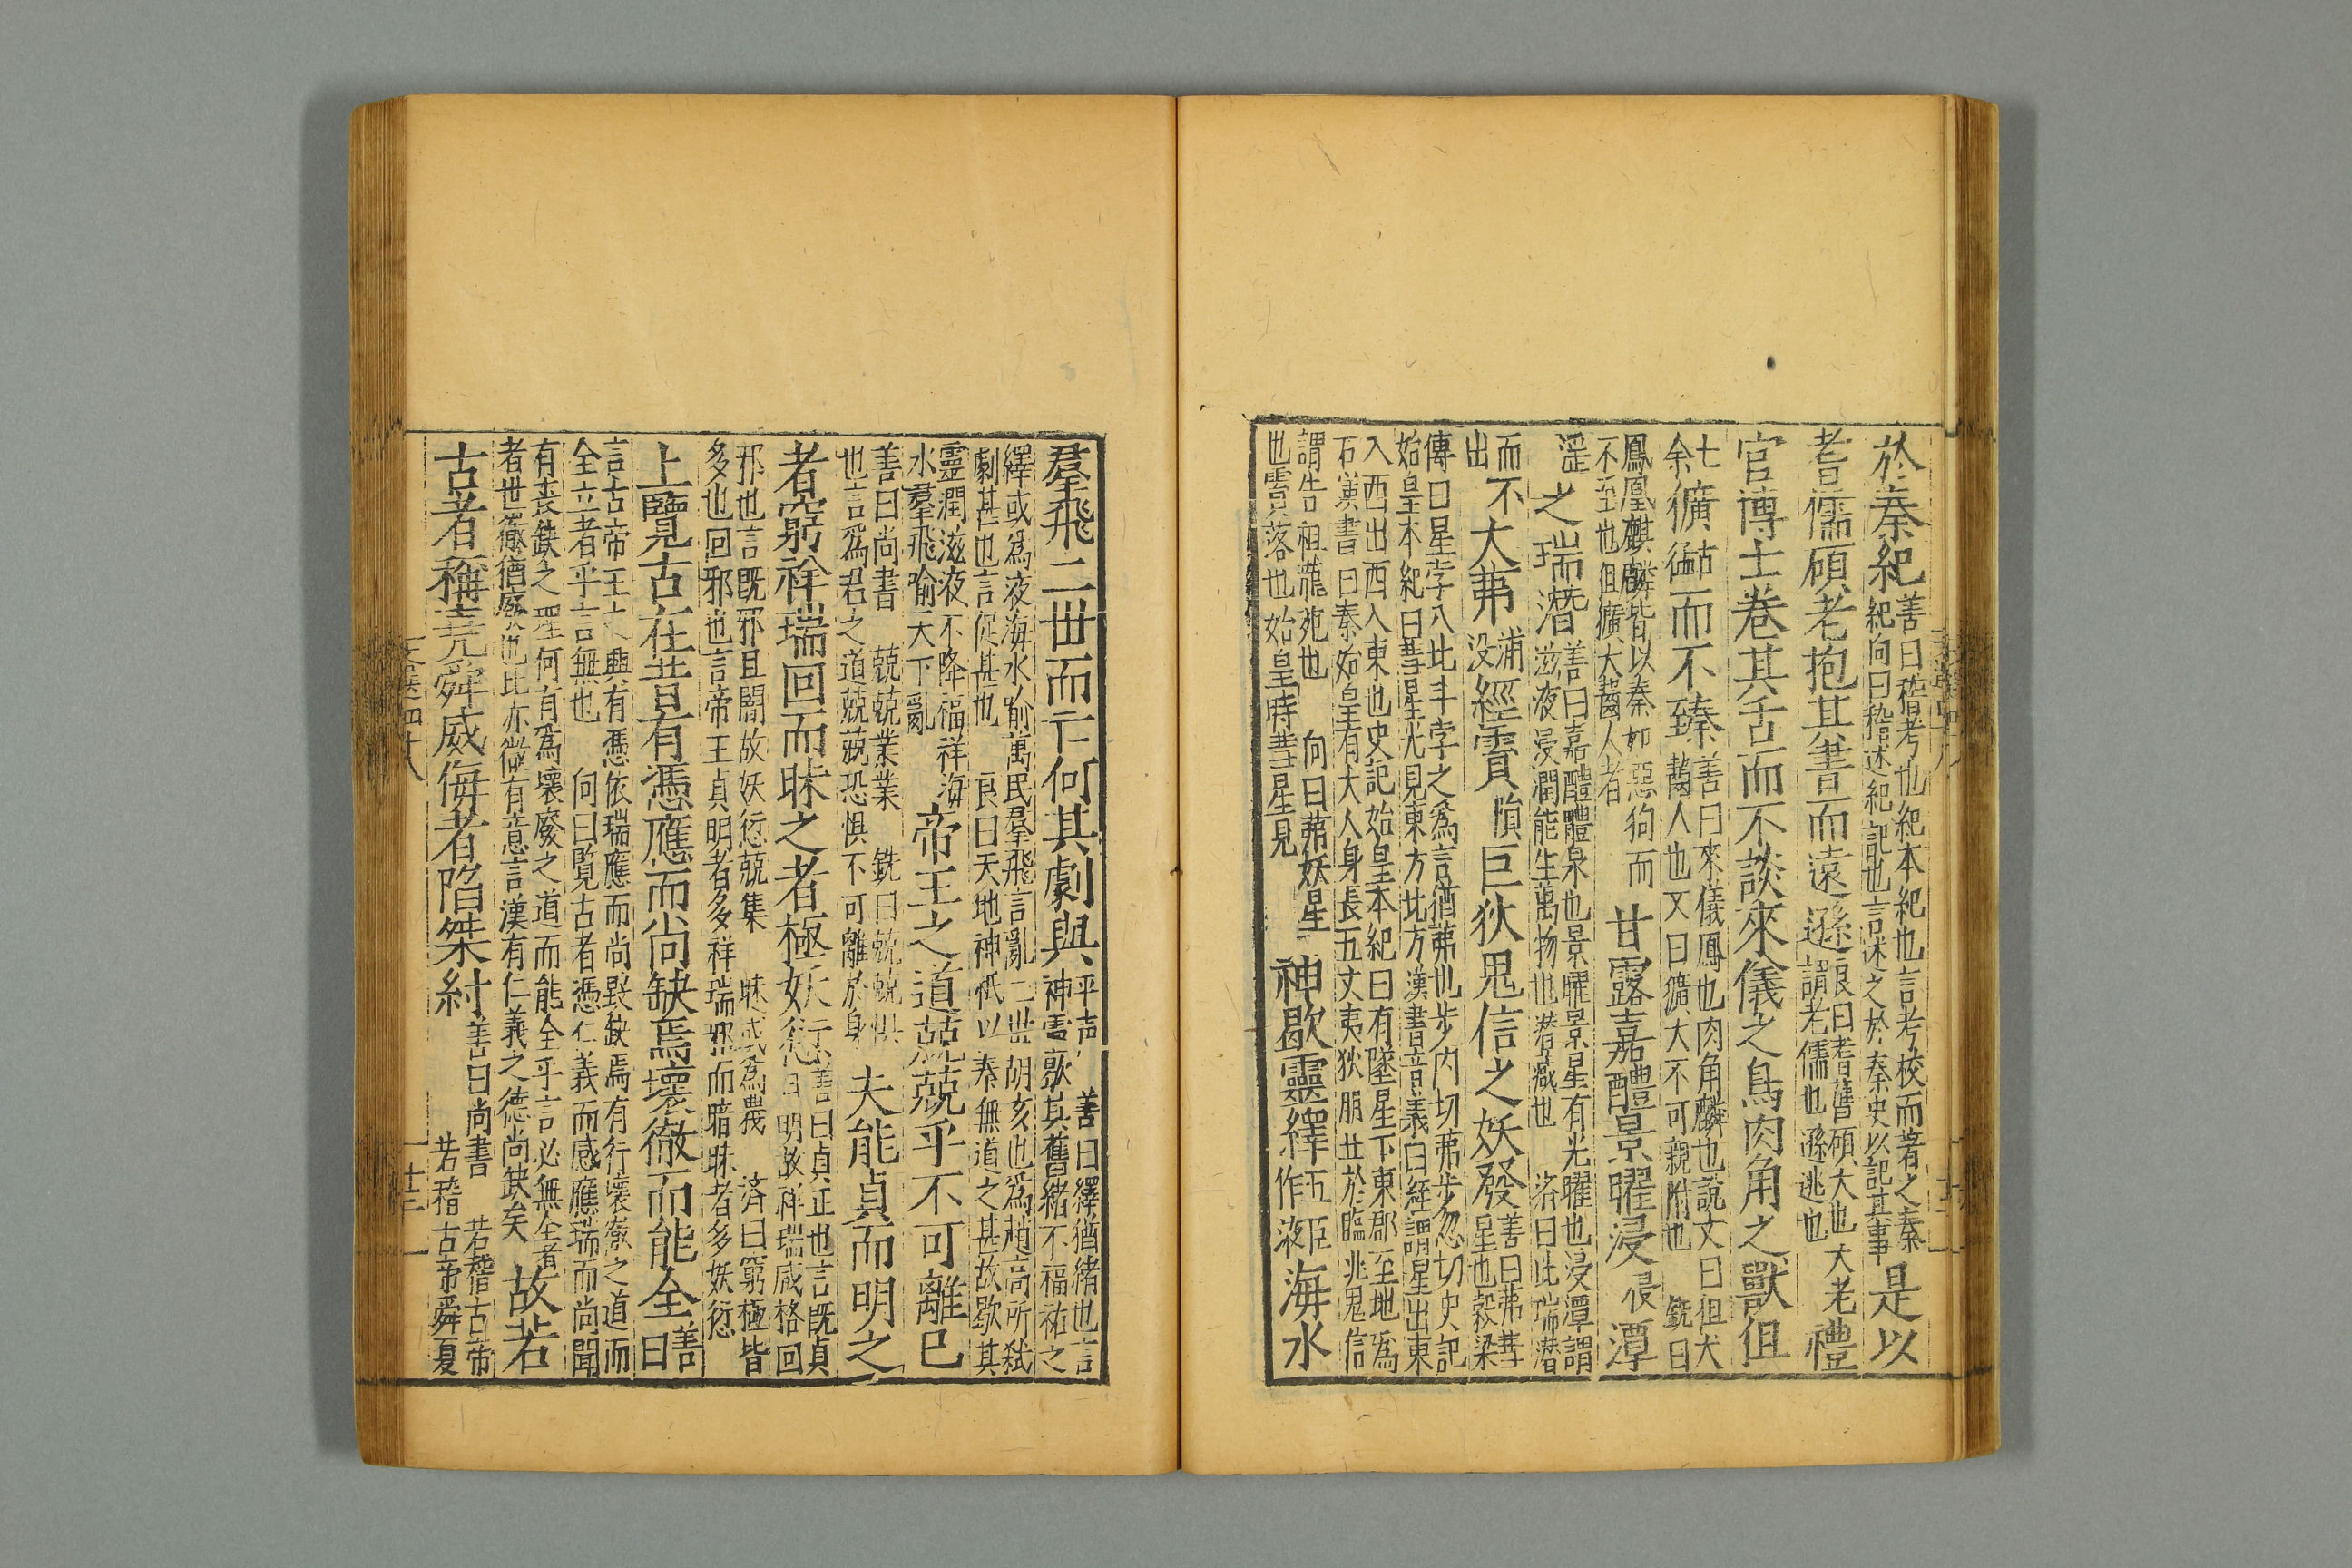 於秦紀善曰稽考也紀本紀也言考校而著之秦
紀向曰稽述紀記也言述之於秦史以記其事是以
耆儒碩老抱其書而遠遜良曰耆舊碩大也大老
謂老儒也遜逃也禮
官博士卷其舌而不談來儀之鳥肉角之獸狙
七余獷古猛而不臻善曰來儀鳳也肉角麟也說文曰狙犬
齧人也又曰獷犬不可親附也 銑曰
鳳凰麒麟皆以秦如惡狗而
不至也狙獷犬齧人者甘露嘉醴景曜浸浸潭
淫之瑞潛善曰嘉醴醴泉也景曜景星有光曜也浸潭謂
滋液浸潤能生萬物也潛藏也 濟曰此瑞潛
而不
出大茀浦
没經霣隕巨狄鬼信之妖發善曰茀彗
星也穀梁
傳曰星孛入北斗孛之為言猶茀也步内切茀步忽切史記
始皇本紀曰彗星光見東方北方漢書音義曰經謂星出東
入西出西入東也史記始皇本紀曰有墜星下東郡至地為
石漢書曰秦始皇有大人身長五丈夷狄服出於臨洮鬼信
謂告祖龍死也 向曰茀妖星
也霣落也始皇時彗星見神歇靈繹五臣
作液海水
羣飛二世而亡何其劇與平声 善曰繹猶緒也言
神靈歇其舊緒不福祐之
繹或為液海水喻萬民羣飛言亂二世胡亥也為趙高所弒
劇甚也言促甚也 良曰天地神祇以秦無道之甚故歇其
靈潤滋液不降福祥海
水羣飛喻天下亂帝王之道兢兢乎不可離已
善曰尚書 兢兢業業 銑曰兢兢懼
也言為君之道兢兢恐惧不可離於身夫能貞而明之
者窮祥瑞回而昧之者極妖愆善曰貞正也言既貞
且明故祥瑞咸格回
邪也言既邪且闇故妖愆兢集 昧或為蔑 濟曰窮極皆
多也回邪也言帝王貞明者多祥瑞邪而暗昧者多妖愆
上覽古在昔有憑應而尚缺焉壞徹而能全善
曰
言古帝王之興有憑依瑞應而尚毀缺焉有行壞徹之道而
全立者乎言無也 向曰覽古者憑仁義而感應瑞而尚聞
有喪缺之理何有為壞廢之道而能全乎言必無全者
者世徹猶廢也比亦微有意言漢有仁義之德尚缺矣故若
古者稱堯舜威侮者陷桀紂善曰尚書 若稽古帝
若稽古帝舜夏
文選四十八
十三